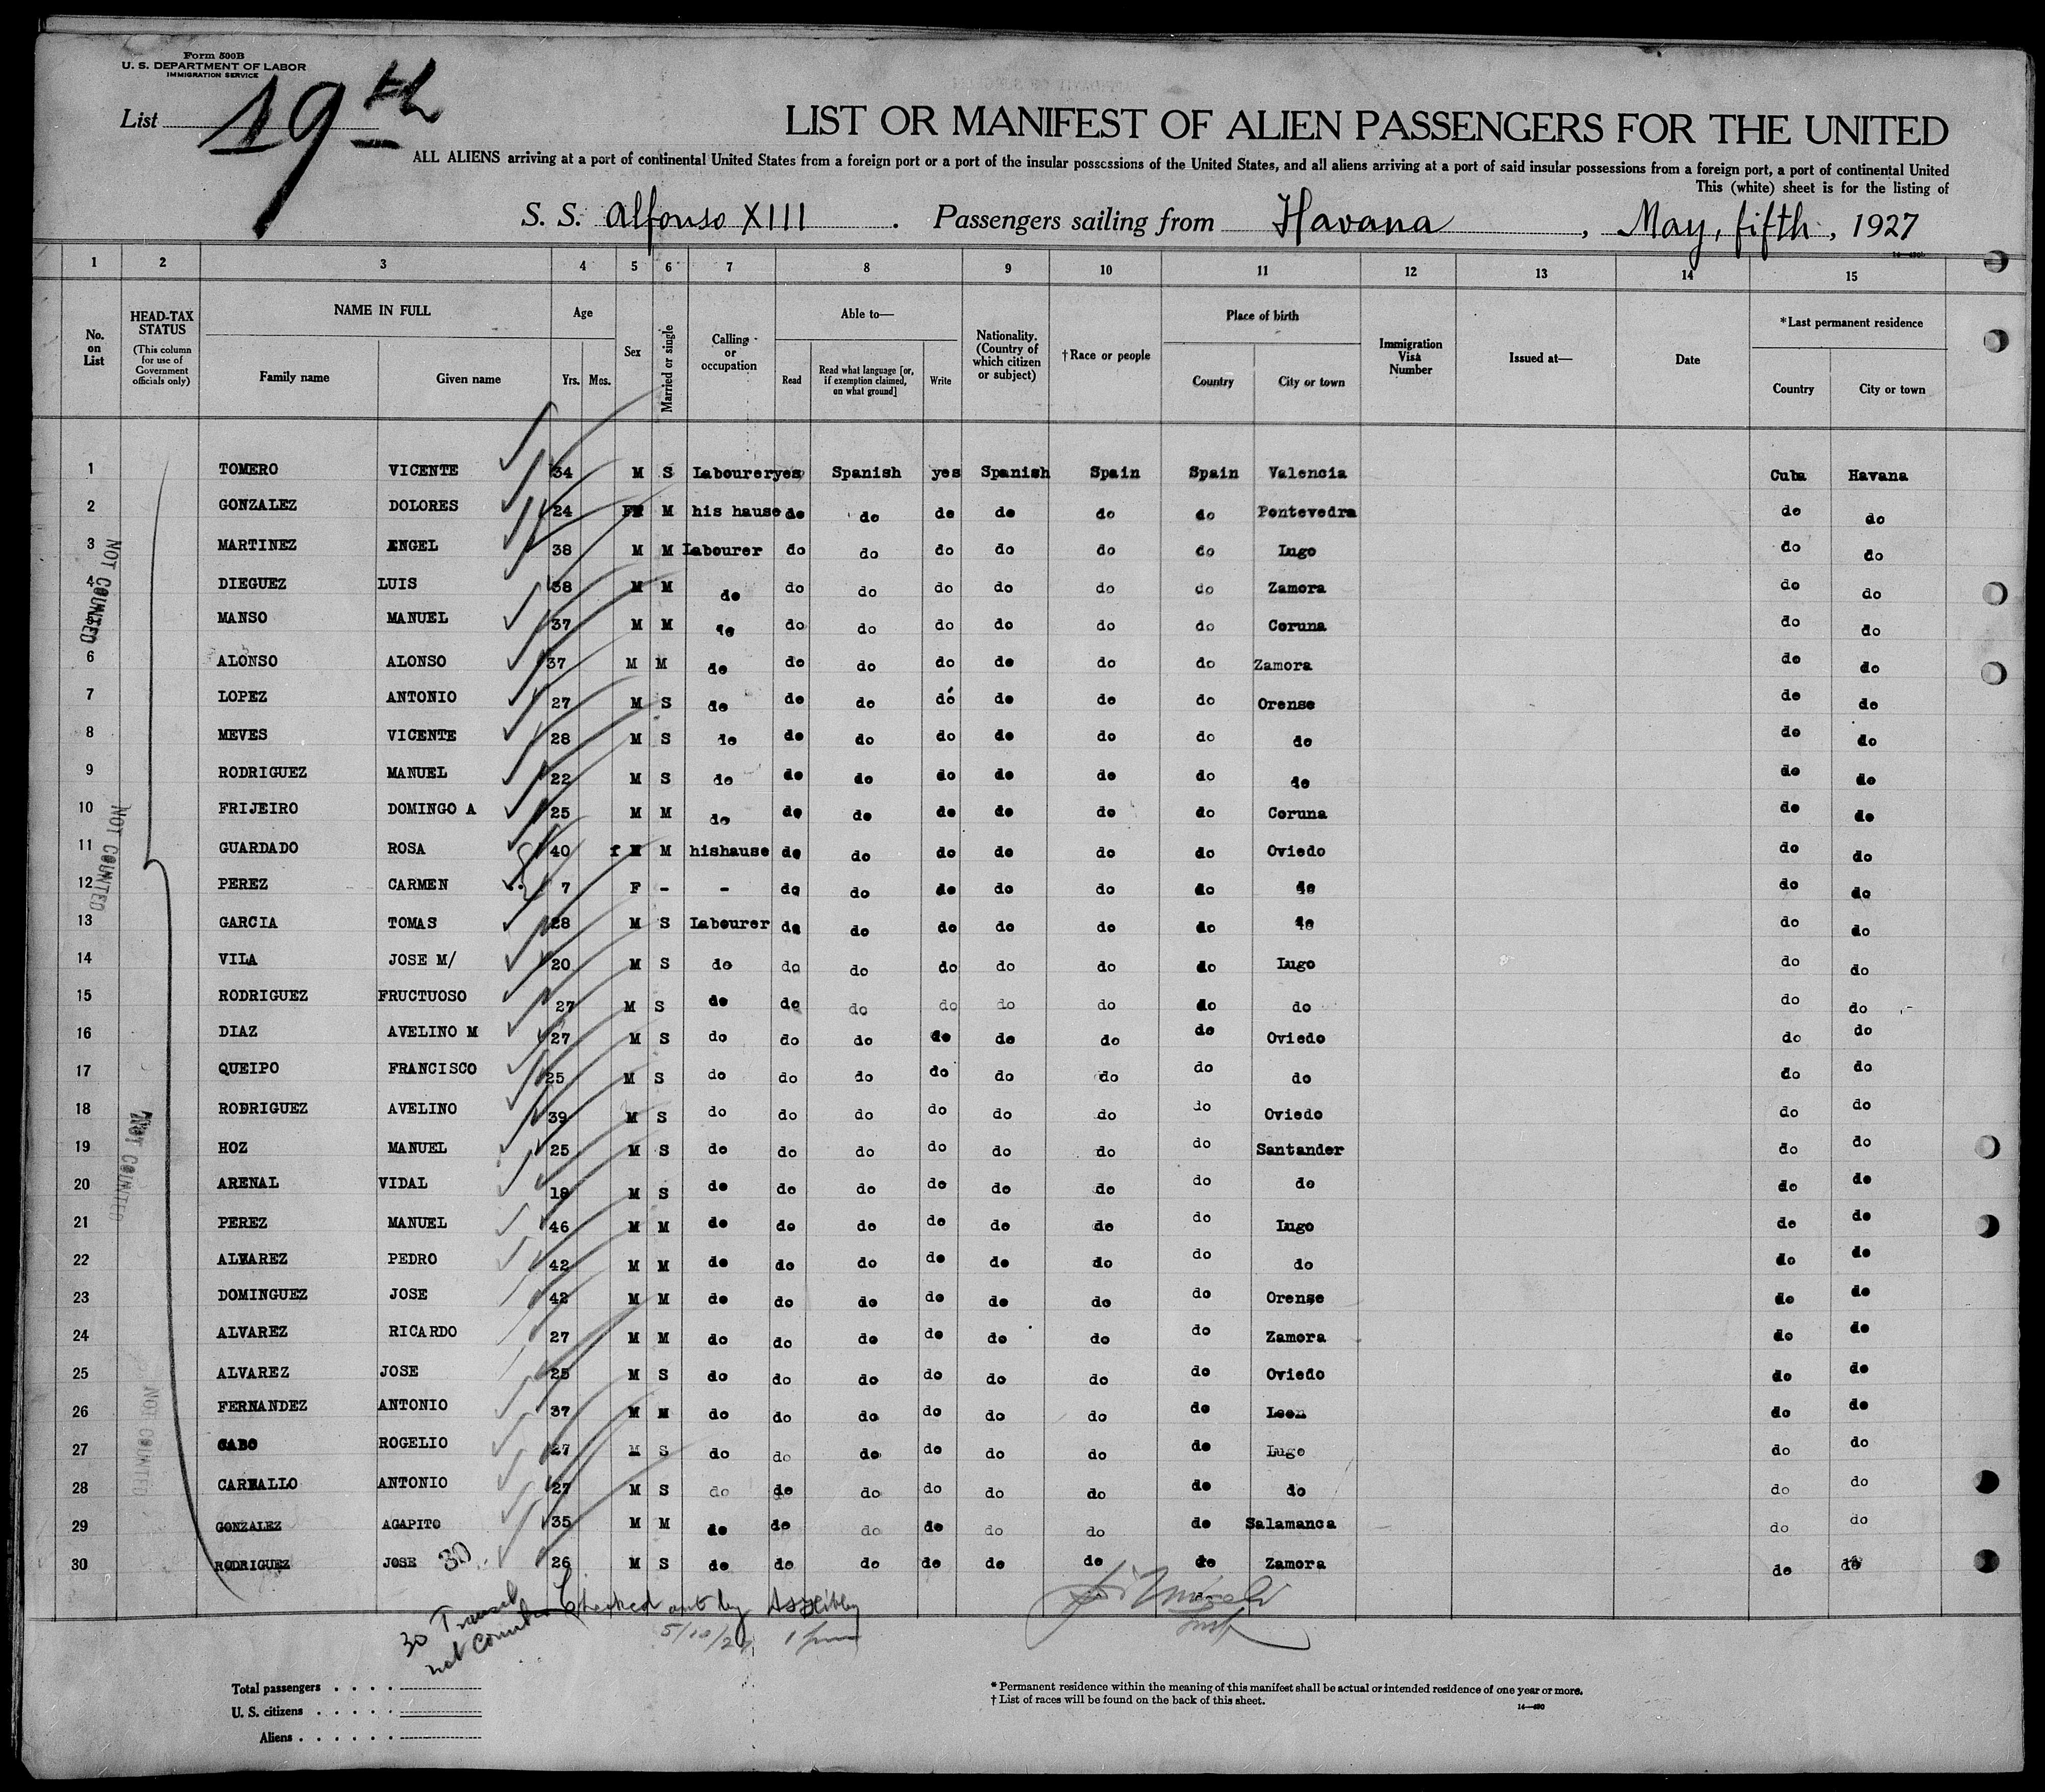 Form 500B
U. S. DEPARTMENT OF LABOR
IMMIGRATION SERVICE
List 19th
LIST OR MANIFEST OF ALIEN PASSENGERS FOR THE UNITED
ALL ALIENS arriving at a port of continental United States from a foreign port or a port of the insular possessions of the United States, and all aliens arriving at a port of said insular possessions from a foreign port, a port of continental United
This (white) sheet is for the listing of
S. S. Alfonso XIII. Passengers sailing from Havana, May, fifth, 1927
1 2 3 4 5 6 7 8 9 10 11 12 13 14 15
No. on List
HEAD-TAX STATUS (This column for use of Government officials only)
NAME IN FULL
Family name Given name
Age
Yrs. Mos.
Sex
Married or single
Calling or occupation
Able to—
Read Read what language [or, if exemption claimed, on what ground] Write
Nationality. (Country of which citizen or subject)
†Race or people
Place of birth
Country City or town
Immigration Visa Number
Issued at—
Date
*Last permanent residence
Country City or town
1 TOMERO VICENTE 34 M S Labourer yes Spanish yes Spanish Spain Spain Valencia Cuba Havana
2 GONZALEZ DOLORES 24 F M his hause do do do do do do Pontevedra do do
3 MARTINEZ ANGEL 38 M M Labourer do do do do do do Lugo do do
4 DIEGUEZ LUIS 38 M M do do do do do do do Zamora do do
MANSO MANUEL 37 M M do do do do do do do Coruna do do
6 ALONSO ALONSO 37 M M do do do do do do do Zamora do do
7 LOPEZ ANTONIO 27 M S do do do do do do do Orense do do
8 MEVES VICENTE 28 M S do do do do do do do do do do
9 RODRIGUEZ MANUEL 22 M S do do do do do do do do do do
10 FRIJEIRO DOMINGO A 25 M M do do do do do do do Coruna do do
11 GUARDADO ROSA 40 f M hishause do do do do do do Oviedo do do
12 PEREZ CARMEN 7 F - - do do do do do do do do do
13 GARCIA TOMAS 28 M S Labourer do do do do do do do do do
14 VILA JOSE M/ 20 M S do do do do do do do Lugo do do
15 RODRIGUEZ FRUCTUOSO 27 M S do do do do do do do do do do
16 DIAZ AVELINO M 27 M S do do do do do do do Oviedo do do
17 QUEIPO FRANCISCO 25 M S do do do do do do do do do do
18 RODRIGUEZ AVELINO 39 M S do do do do do do do Oviedo do do
19 HOZ MANUEL 25 M S do do do do do do do Santander do do
20 ARENAL VIDAL 18 M S do do do do do do do do do do
21 PEREZ MANUEL 46 M M do do do do do do do Lugo do do
22 ALVAREZ PEDRO 42 M M do do do do do do do do do do
23 DOMINGUEZ JOSE 42 M M do do do do do do do Orense do do
24 ALVAREZ RICARDO 27 M M do do do do do do do Zamora do do
25 ALVAREZ JOSE 25 M S do do do do do do do Oviedo do do
26 FERNANDEZ ANTONIO 37 M M do do do do do do do Leon do do
27 CABO ROGELIO 27 M S do do do do do do do Lugo do do
28 CARBALLO ANTONIO 27 M S do do do do do do do do do do
29 GONZALEZ AGAPITO 35 M M do do do do do do do Salamanca do do
30 RODRIGUEZ JOSE 30 26 M S do do do do do do do Zamora do do
NOT COUNTED
NOT COUNTED
NOT COUNTED
NOT COUNTED
30 Transit not counted
Checked out by
5/10/27 1 pm
Total passengers
U. S. citizens
Aliens
* Permanent residence within the meaning of this manifest shall be actual or intended residence of one year or more.
† List of races will be found on the back of this sheet.
14—430